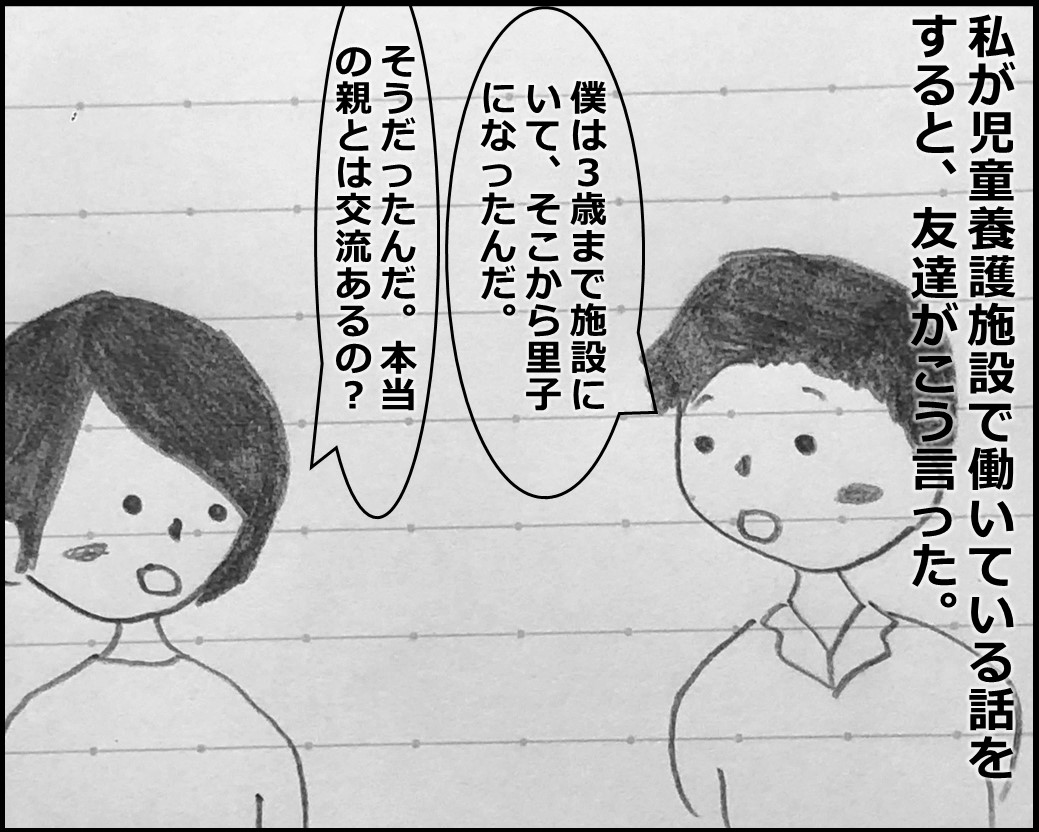 私が児童養護施設で働いている話を
すると、友達がこう言った。
僕は３歳まで施設に
いて、そこから里子
になったんだ。
そうだったんだ。本当
の親とは交流あるの？